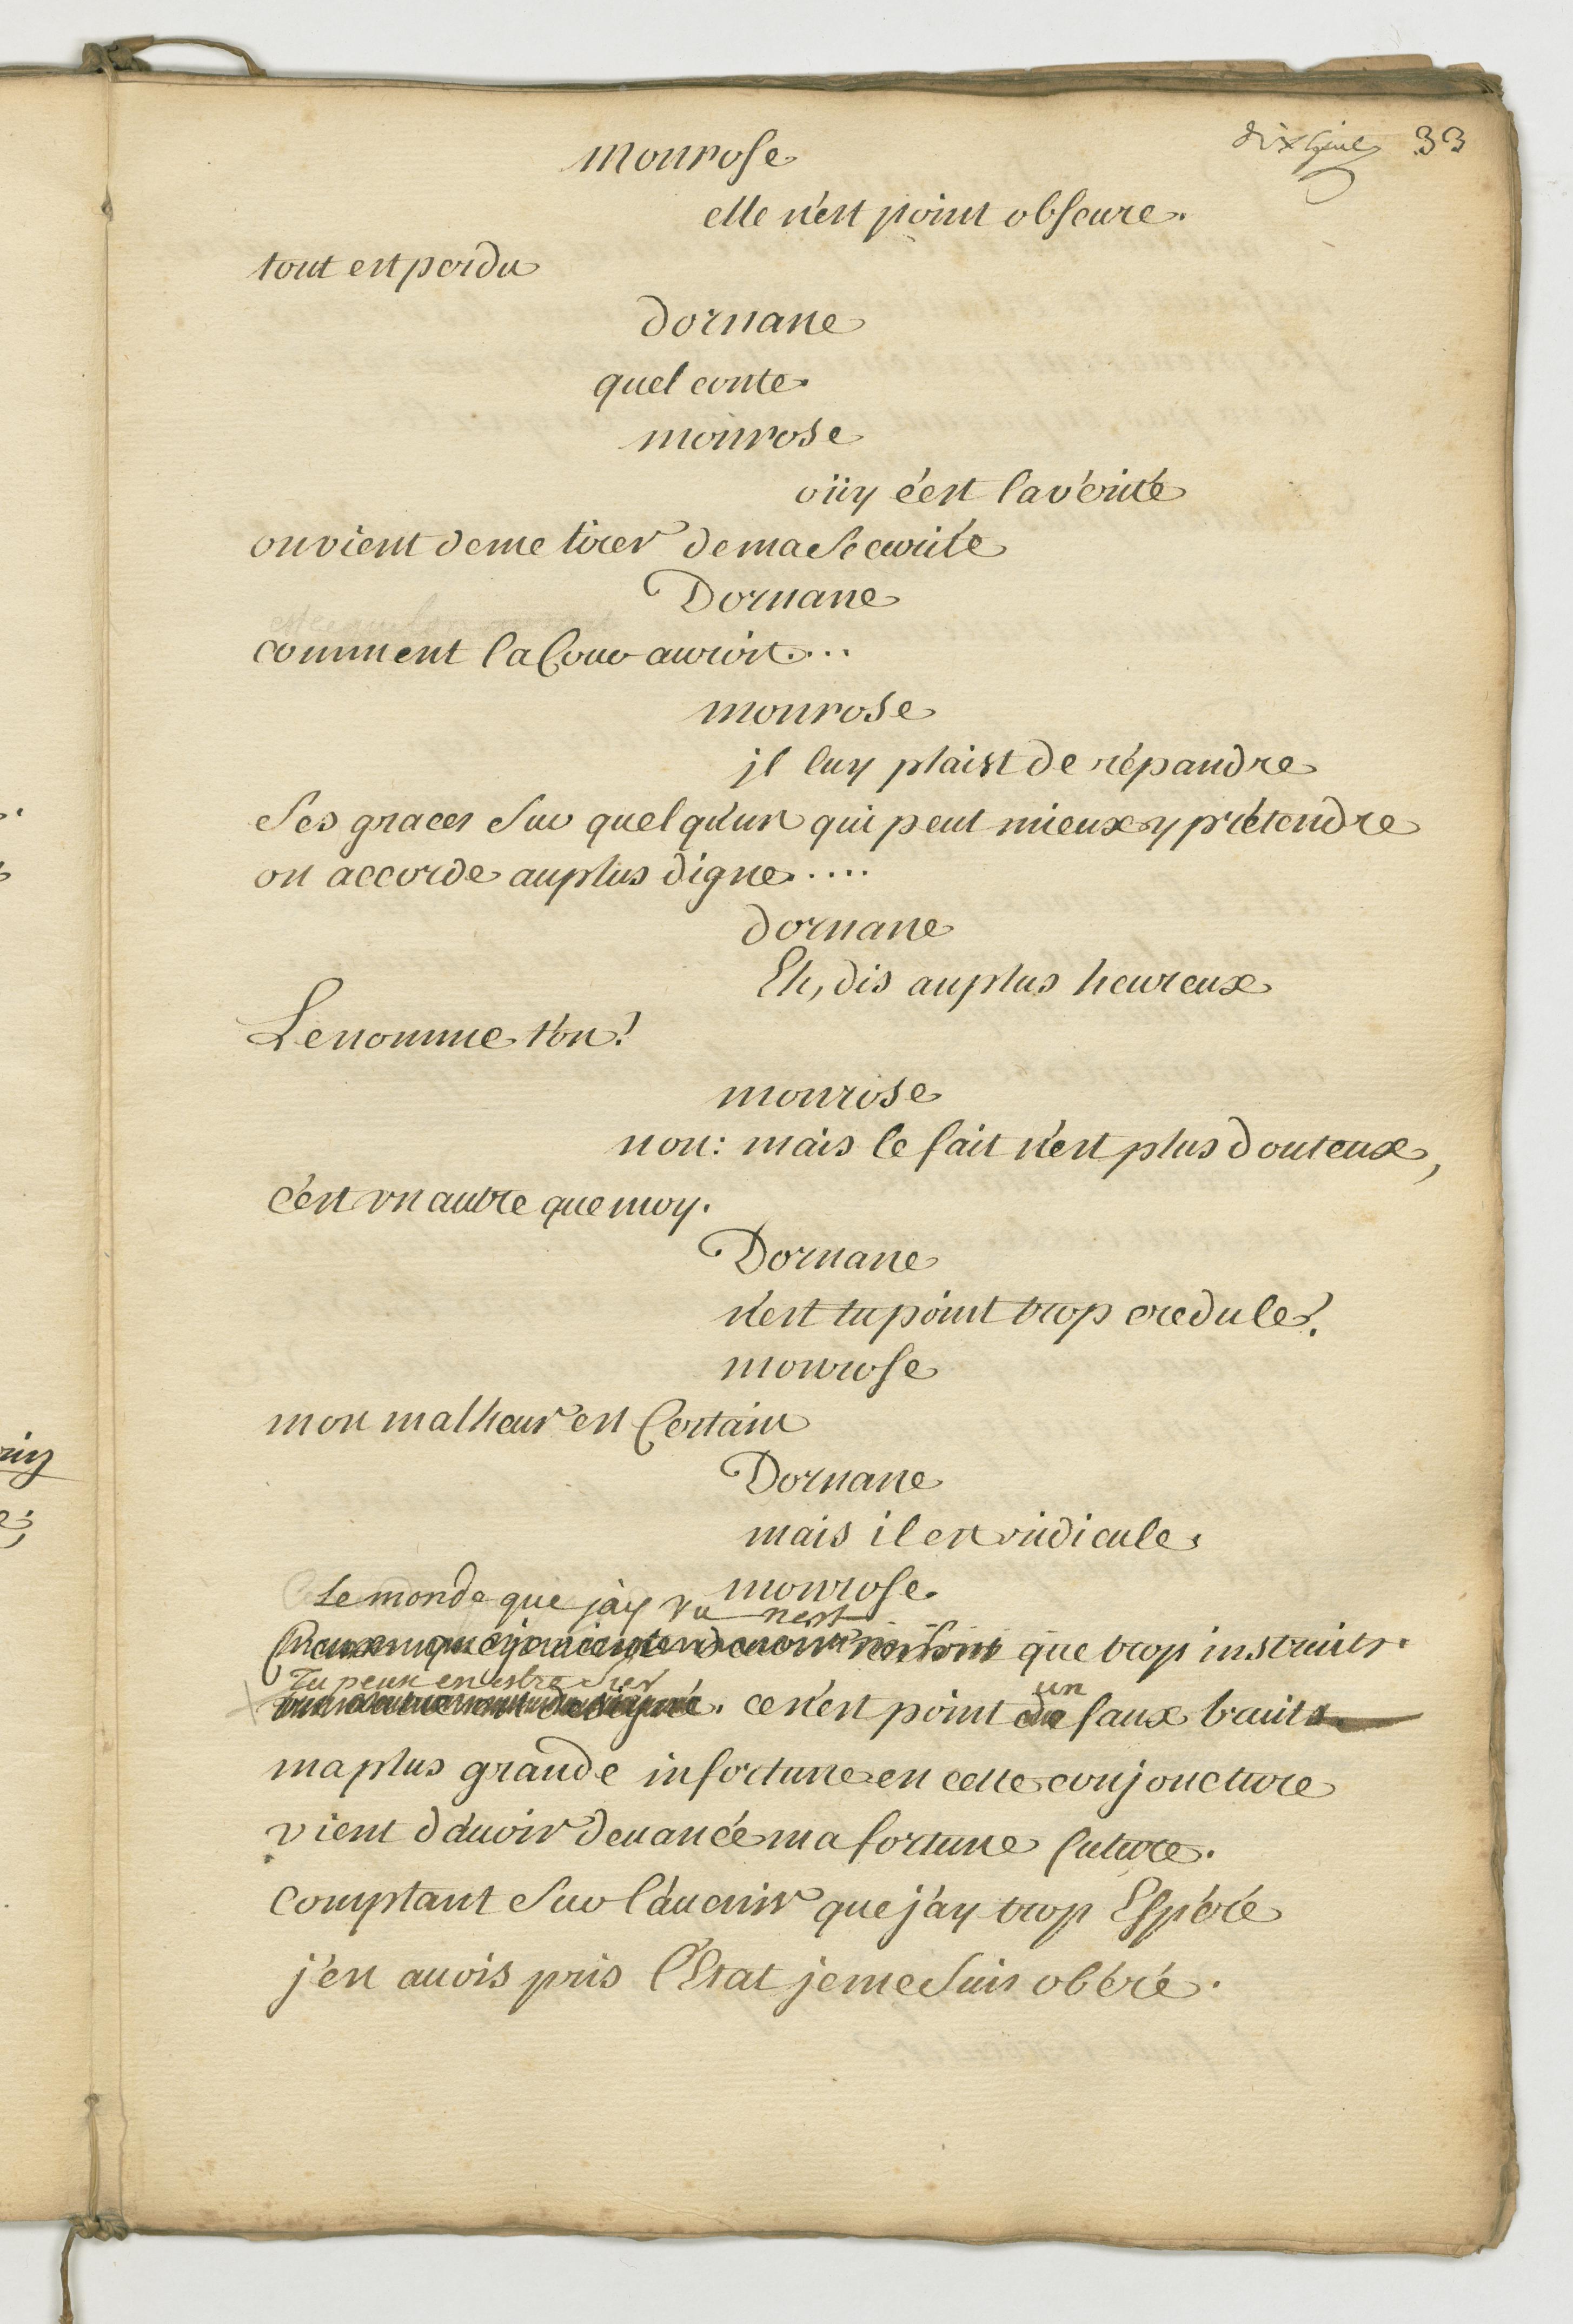 dixhuit 33
monrose
elle n'est point obscure.
tout est perdu
dornane
quel conte.
monrose
oüy c'est la vérité
on vient de me tirer de ma Securité
Dornane
comment la Cour auroit....
monrose
il luy plaist de répandre
Ses graces Sur quelqu'un qui peut mieux y prétendre
on accorde au plus digne.....
dornane
Eh, dis au plus heureux
Le nomme t'on?
monrose
non: mais le fait n'est plus douteux,
c'est un autre que moy.
Dornane
n'est tu point trop credule?
monrose
mon malheur est Certain
Dornane
mais il est ridicule.
monrose.
Le monde que j'ay vu n'est
que trop instruit.
Tu peux en estre Sur
ce n'est point un faux bruit
ma plus grande infortune en cette conjoncture
vient d'auoir deuancé ma fortune future.
comptant Sur l'auenir que j'ay trop Espéré
j'en auois pris l'Etat je me Suis obéré.